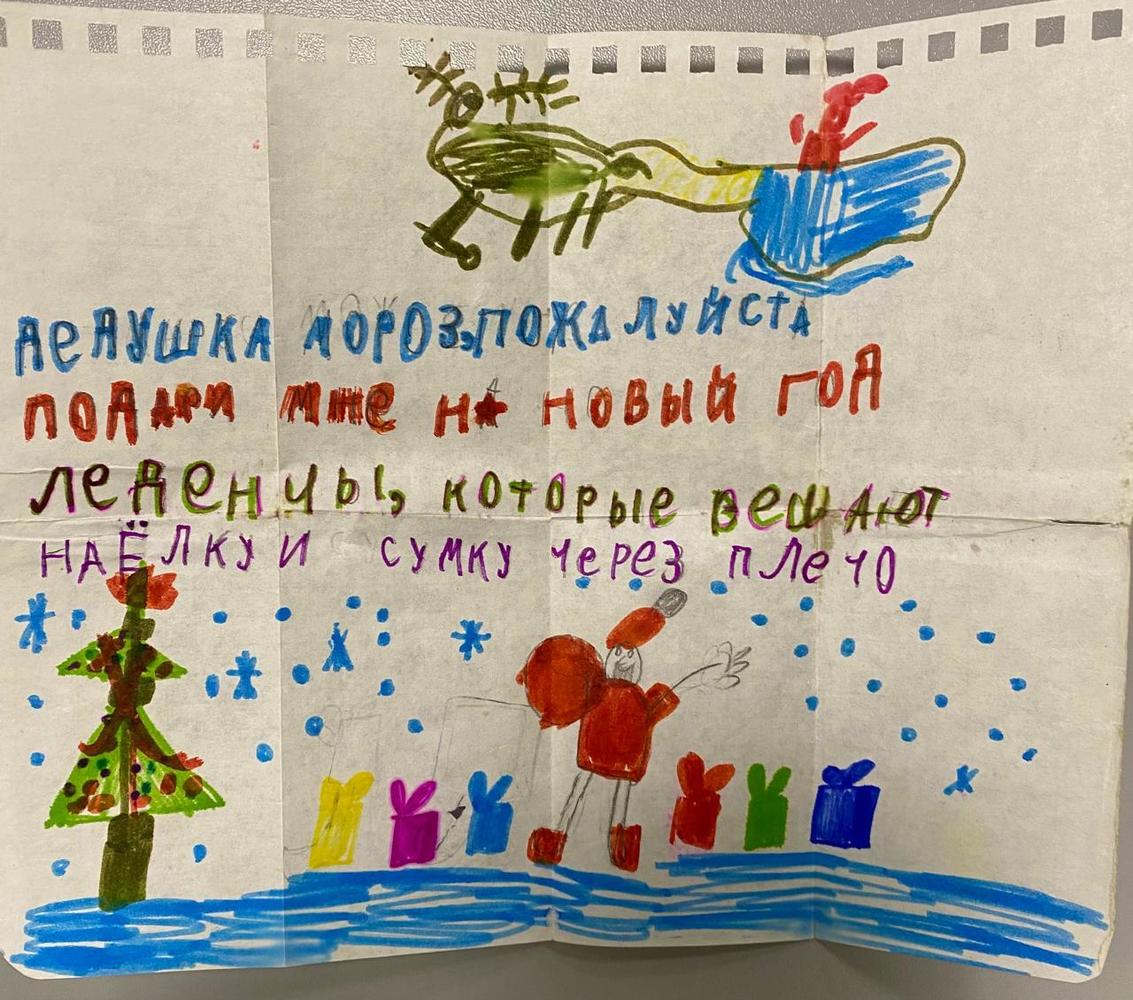 ДЕДУШКА МОРОЗ, ПОЖАЛУЙСТА
ПОДАРИ МНЕ НА НОВЫЙ ГОД
ЛЕДЕНЦЫ, КОТОРЫЕ ВЕШАЮТ
НА ЁЛКУ И СУМКУ ЧЕРЕЗ ПЛЕЧО